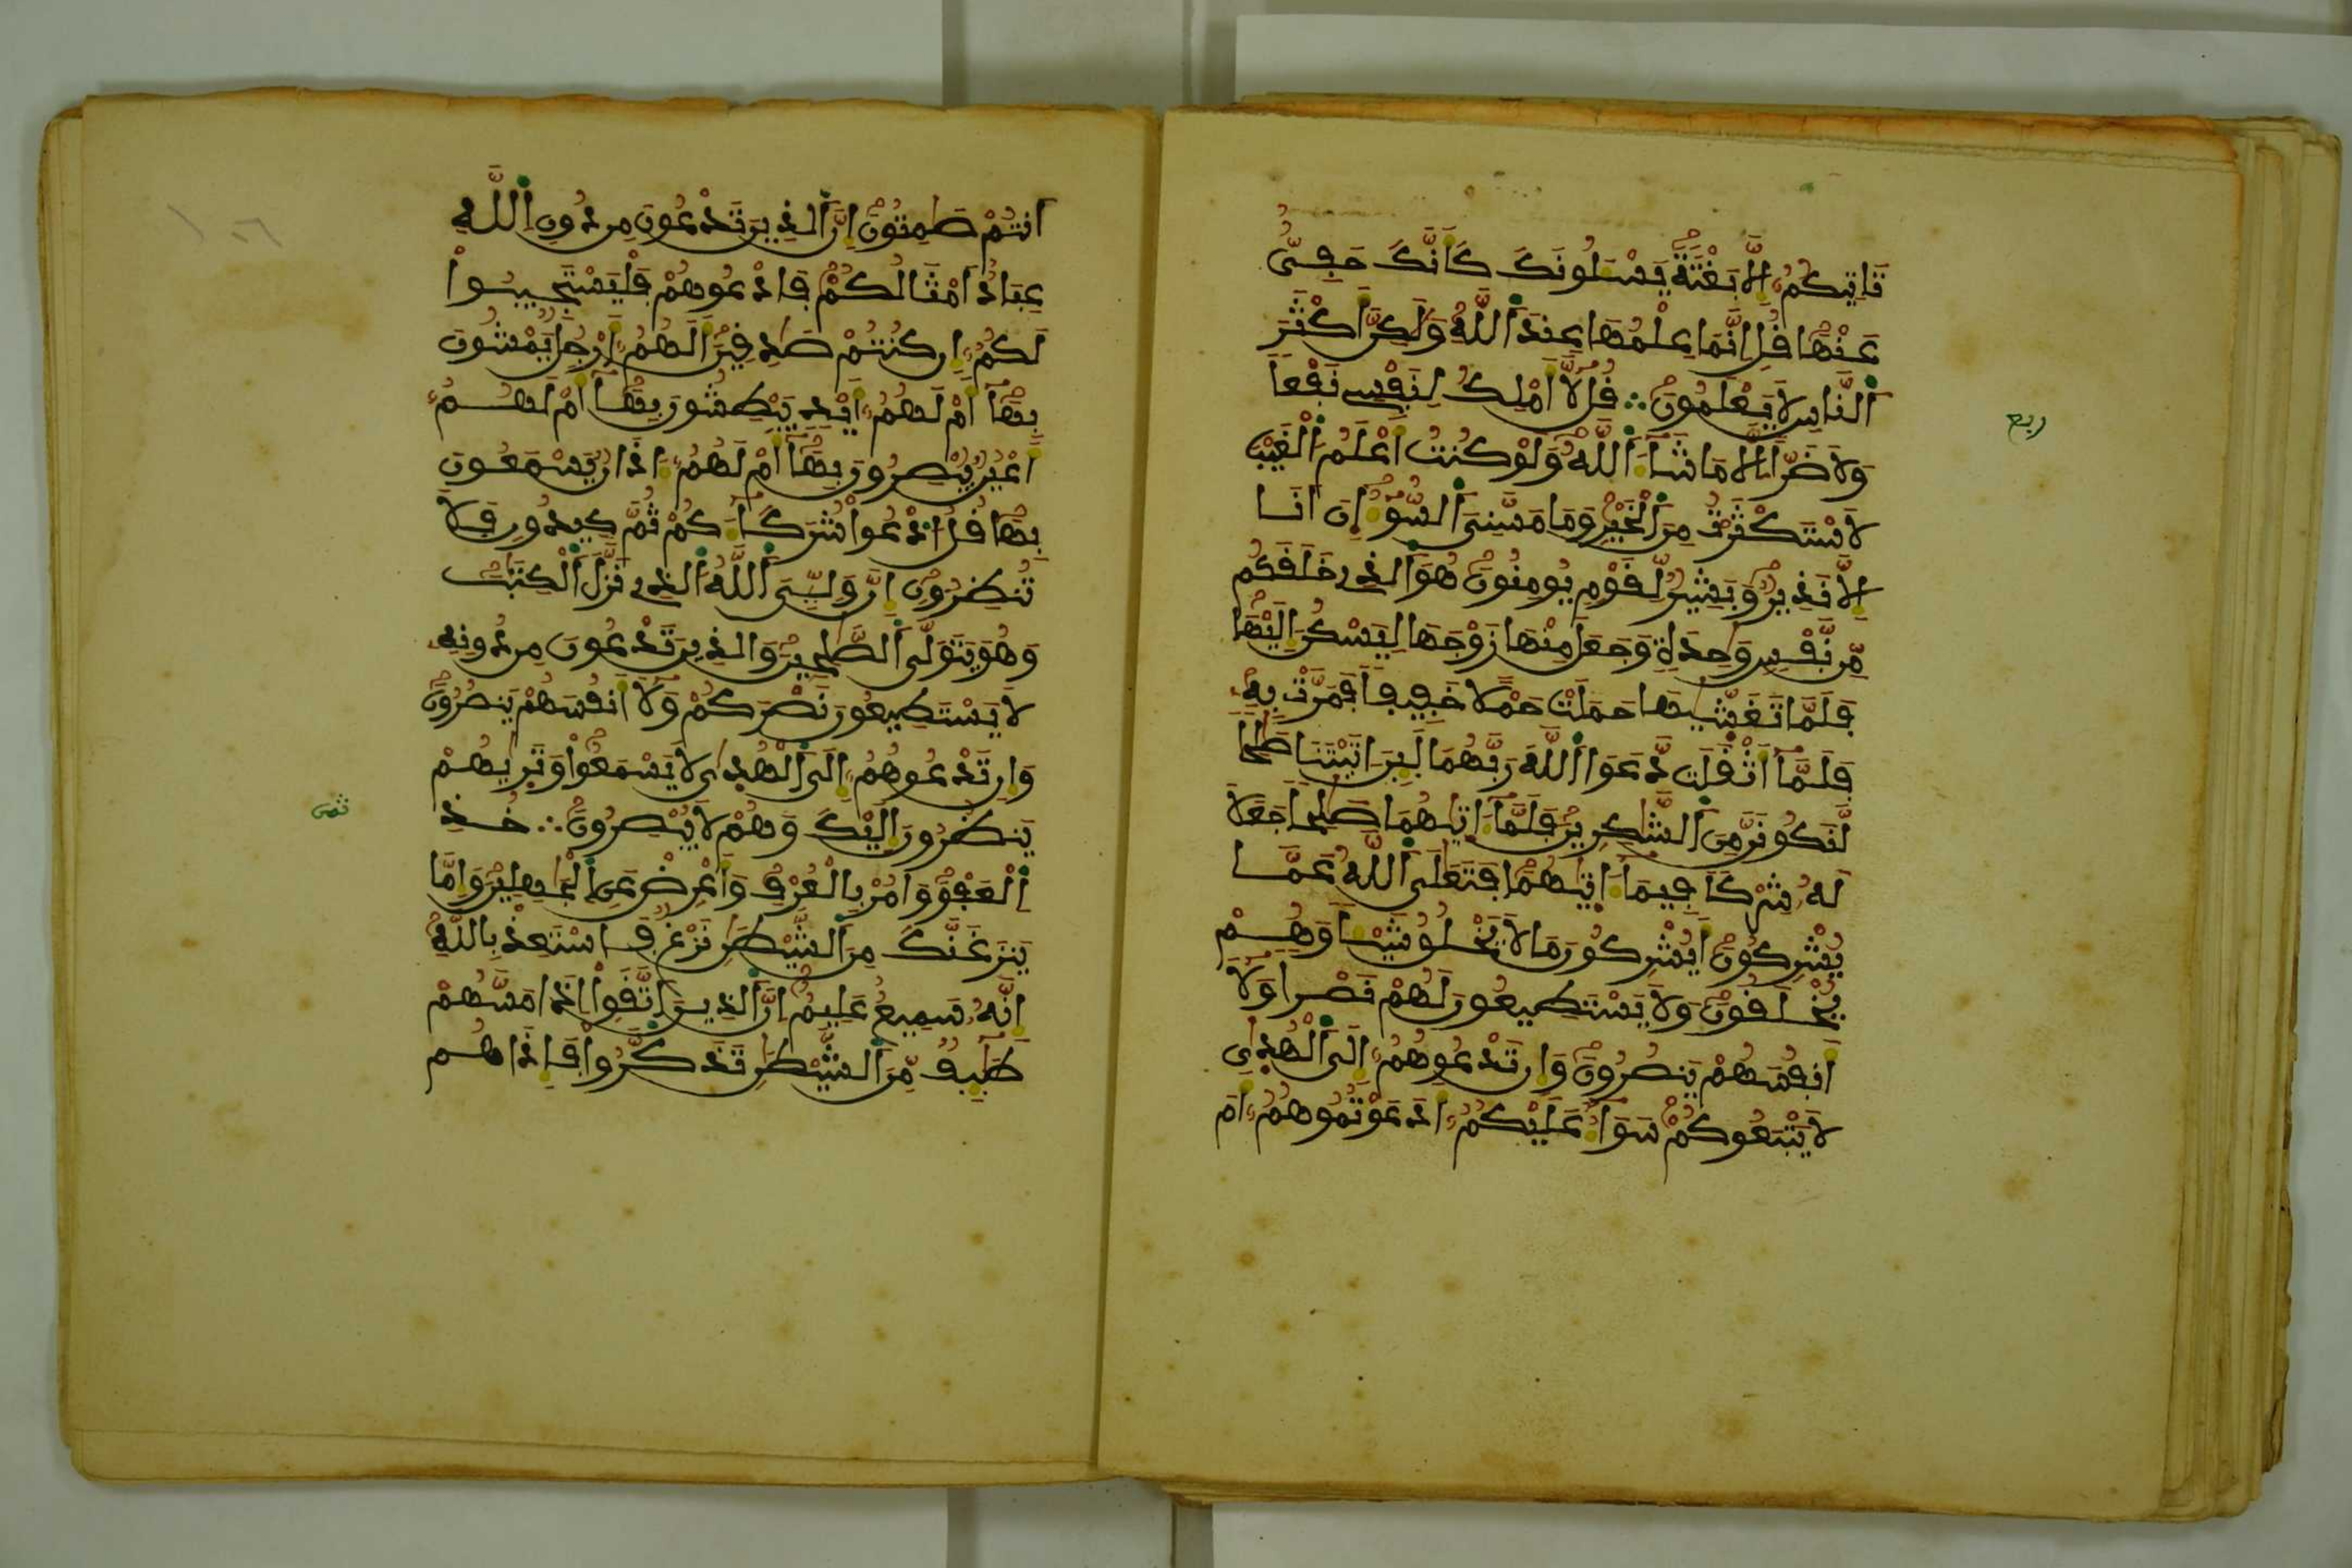 تَاتِيكُمُۥٓ إِلَّا بَغْتَةٗ يَسْـَٔلُونَكَ كَأَنَّكَ حَفِىٌّ
عَنْهَا قُلِ انَّمَا عِلْمُهَا عِندَ اَللَّهِ وَلَٰكِنَّ أَكْثَرَ
اَلنَّاسِ لَا يَعْلَمُونَ ∴ قُل لَّآ أَمْلِكُ لِنَفْسِے نَفْعاٗ
وَلَا ضَرّاً اِلَّا مَا شَآءَ اَللَّهُ وَلَوْ كُنتُ أَعْلَمُ اُلْغَيْبَ
لَاسْتَكْثَرْتُ مِنَ اَلْخَيْرِ وَمَا مَسَّنِىَ اَلسُّوٓءُ إِنَ اَنَا
إِلَّا نَذِيرٞ وَبَشِيرٞ لِّقَوْمٖ يُومِنُونَ هُوَ اَلذِے خَلَقَكُم
مِّن نَّفْسٖ وَٰحِدَةٖ وَجَعَلَ مِنْهَا زَوْجَهَا لِيَسْكُنَ إِلَيْهَا
فَلَمَّا تَغَشَّيٰهَا حَمَلَتْ حَمْلًا خَفِيفاٗ فَمَرَّتْ بِهِۦ
فَلَمَّآ أَثْقَلَت دَّعَوَا اَللَّهَ رَبَّهُمَا لَئِنَ اٰتَيْتَنَا صَٰلِحاٗ
لَّنَكُونَنَّ مِنَ اَلشَّٰكِرِينَ فَلَمَّآ ءَاتَيٰهُمَا صَٰلِحاٗ جَعَلَا
لَهُۥ شِرْكاٗ فِيمَآ ءَاتَيٰهُمَا فَتَعَٰلَى اَللَّهُ عَمَّا
يُشْرِكُونَ أَيُشْرِكُونَ مَا لَا يَخْلُقُ شَيْـٔاٗ وَهُمْ
يُخْلَقُونَ وَلَا يَسْتَطِيعُونَ لَهُمْ نَصْراٗ وَلَآ
أَنفُسَهُمْ يَنصُرُونَ وَإِن تَدْعُوهُمُۥٓ إِلَى اَلْهُدٰى
لَا يَتْبَعُوكُمْ سَوَآءٌ عَلَيْكُمُۥٓ أَدَعَوْتُمُوهُمُۥٓ أَمَ
ربع
اَنتُمْ صَٰمِتُونَ إِنَّ اَلذِينَ تَدْعُونَ مِن دُونِ اِللَّهِ
عِبَادٌ اَمْثَالُكُمْ فَادْعُوهُمْ فَلْيَسْتَجِيبُواْ
لَكُمُۥٓ إِن كُنتُمْ صَٰدِقِينَ أَلَهُمُۥٓ أَرْجُلٞ يَمْشُونَ
بِهَآ أَمْ لَهُمُۥٓ أَيْدٖ يَبْطِشُونَ بِهَآ أَمْ لَهُمُۥٓ
أَعْيُنٞ يُبْصِرُونَ بِهَآ أَمْ لَهُمُۥٓ ءَاذَانٞ يَسْمَعُونَ
بِهَا قُلُ اُدْعُواْ شُرَكَآءَكُمْ ثُمَّ كِيدُونِ فَلَا
تُنظِرُونِ إِنَّ وَلِيِّىَ اَللَّهُ اُلذِے نَزَّلَ اَلْكِتَٰبَ
وَهُوَ يَتَوَلَّى اَلصَّٰلِحِينَ وَالذِينَ تَدْعُونَ مِن دُونِهِۦ
لَا يَسْتَطِيعُونَ نَصْرَكُمْ وَلَآ أَنفُسَهُمْ يَنصُرُونَ
وَإِن تَدْعُوهُمُۥٓ إِلَى اَلْهُدٰى لَا يَسْمَعُواْ وَتَرٰيهُمْ
يَنظُرُونَ إِلَيْكَ وَهُمْ لَا يُبْصِرُونَ ∴ خُذِ
اِلْعَفْوَ وَامُرْ بِالْعُرْفِ وَأَعْرِضْ عَنِ اِلْجَٰهِلِينَ وَإِمَّا
يَنزَغَنَّكَ مِنَ اَلشَّيْطَٰنِ نَزْغٞ فَاسْتَعِذْ بِاللَّهِ
إِنَّهُۥ سَمِيعٌ عَلِيمٌ اِنَّ اَلذِينَ اَتَّقَواْ اِذَا مَسَّهُمْ
طَٰٓئِفٞ مِّنَ اَلشَّيْطَٰنِ تَذَكَّرُواْ فَإِذَا هُم
ثمن
١٠٦